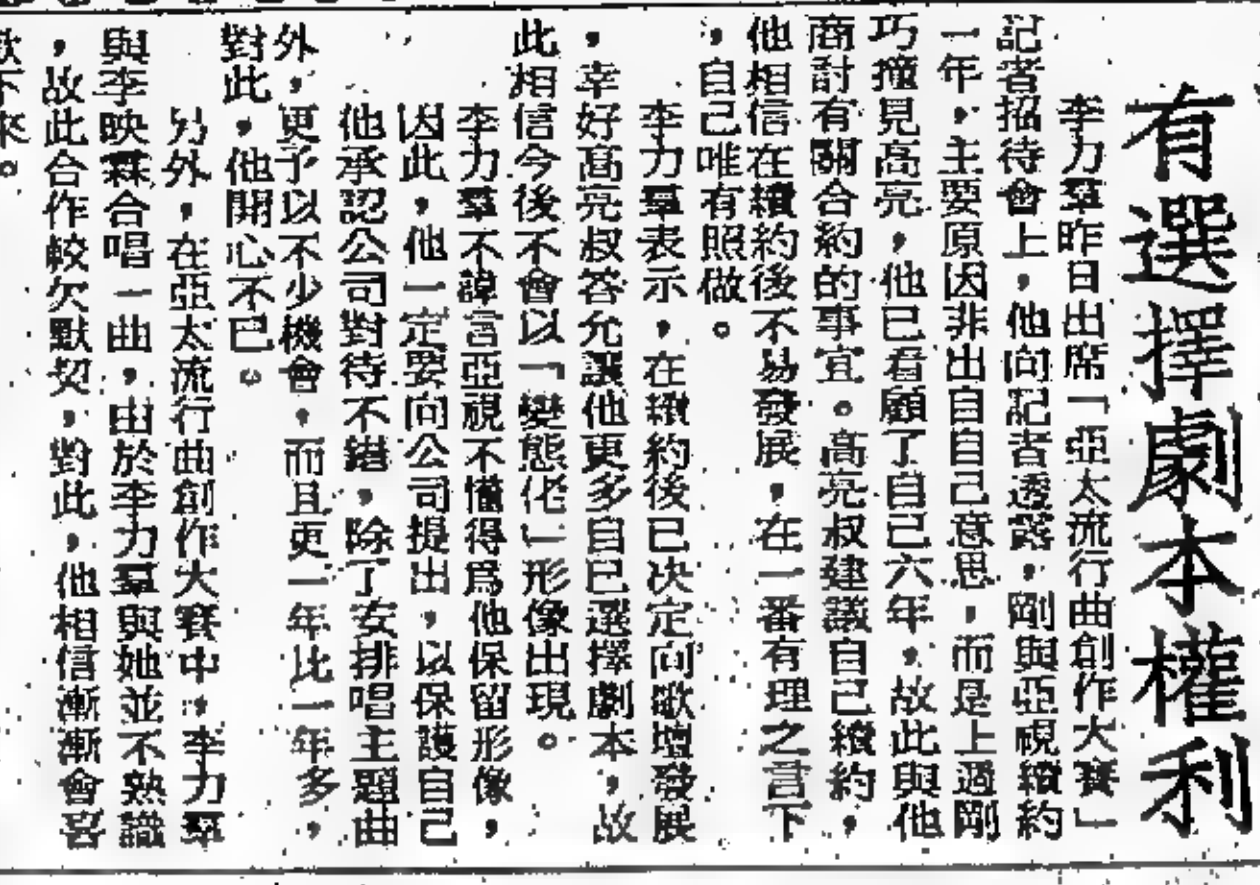 有選擇劇本權利
李力羣昨日出席「亞太流行曲創作大賽」
記者招待會上，他向記者透露，剛與亞視續約
一年，主要原因非出自自己意思，而是上週剛
巧撞見高亮，他已看顧了自己六年，故此與他
商討有關合約的事宜。高亮叔建議自己續約，
他相信在續約後不易發展，在一番有理之言下
，自己唯有照做。
李力羣表示，在續約後已决定向歌壇發展
，幸好高亮叔答允讓他更多自已選擇劇本，故
此相信今後不會以「變態佬」形像出現。
李力羣不諱言亞視不懂得爲他保留形像，
因此，他一定要向公司提出，以保護自己
他承認公司對待不錯，除了安排唱主題曲
外，更予以不少機會，而且更一年比一年多，
對此，他開心不已。
另外，在亞太流行曲創作大賽中，李力羣
與李映霖合唱一曲，由於李力羣與她並不熟識
，故此合作較欠默契，對此，他相信漸漸會
下來。